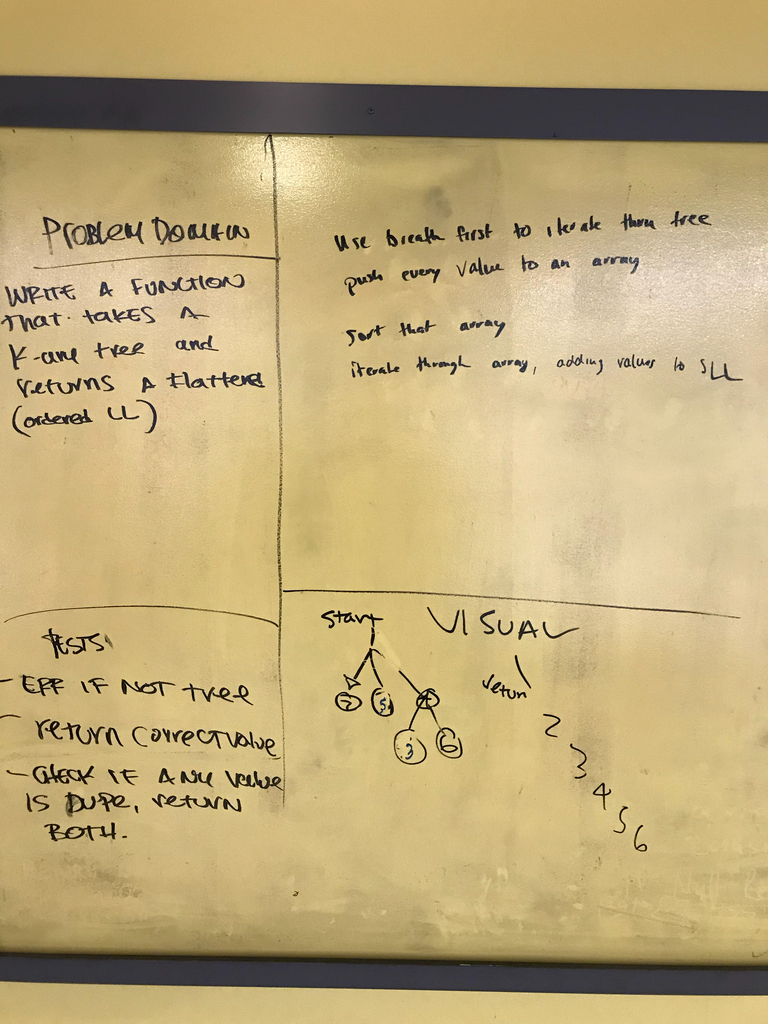 PROBLEM DOMAIN
WRITE A FUNCTION
that takes A
K-ary tree and
returns A flattened
(ordered LL)
Use breath first to iterate thru tree
push every value to an array
sort that array
iterate through array, adding values to SLL
TESTS
- ERR IF NOT tree
- return correct value
- CHECK IF ANY value
IS DUPE, return
BOTH.
start
VISUAL
2 5 4
3 6
return
2
3
4
5
6